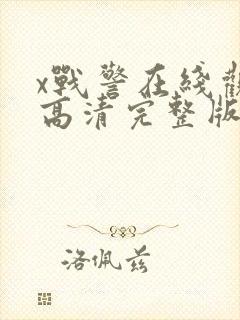 x戰警在綫觀
高清完整版
洛佩兹